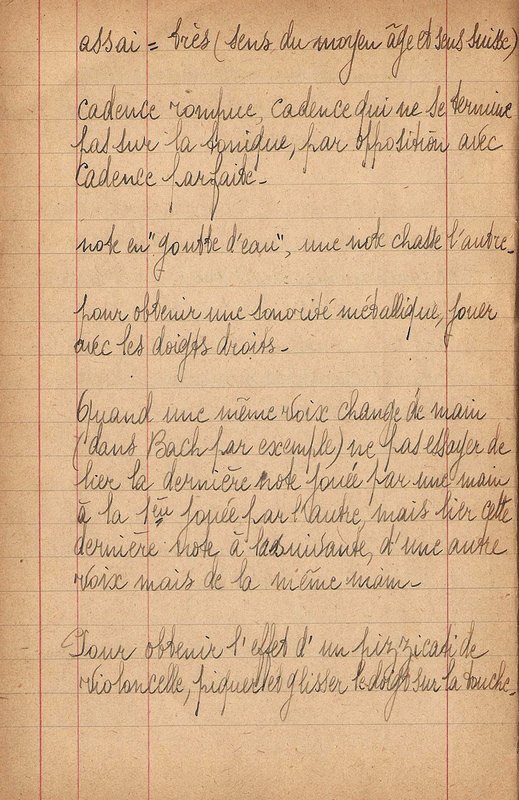 assai = très (sens du moyen âge et sens suisse)
cadence rompue, cadence qui ne se termine
pas sur la tonique, par opposition avec
cadence parfaite-
note en "goutte d'eau", une note chasse l'autre-
pour obtenir une sonorité métallique, jouer
avec les doigts droits-
Quand une même voix change de main
(dans Bach par exemple) ne pas essayer de
lier la dernière note jouée par une main
à la 1èu jouée par l'autre, mais lier cette
dernière note à la suivante, d'une autre
voix mais de la même main-
Pour obtenir l'effet d'un pizzicati de
violoncelle, piquer et glisser le doigt sur la touche-